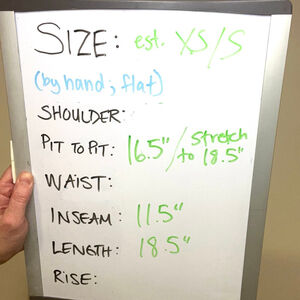 SIZE: est. XS/S
(by hand; flat)
SHOULDER:
PIT TO PIT: 16.5"/stretch to 18.5"
WAIST:
INSEAM: 11.5"
LENGTH: 18.5"
RISE: